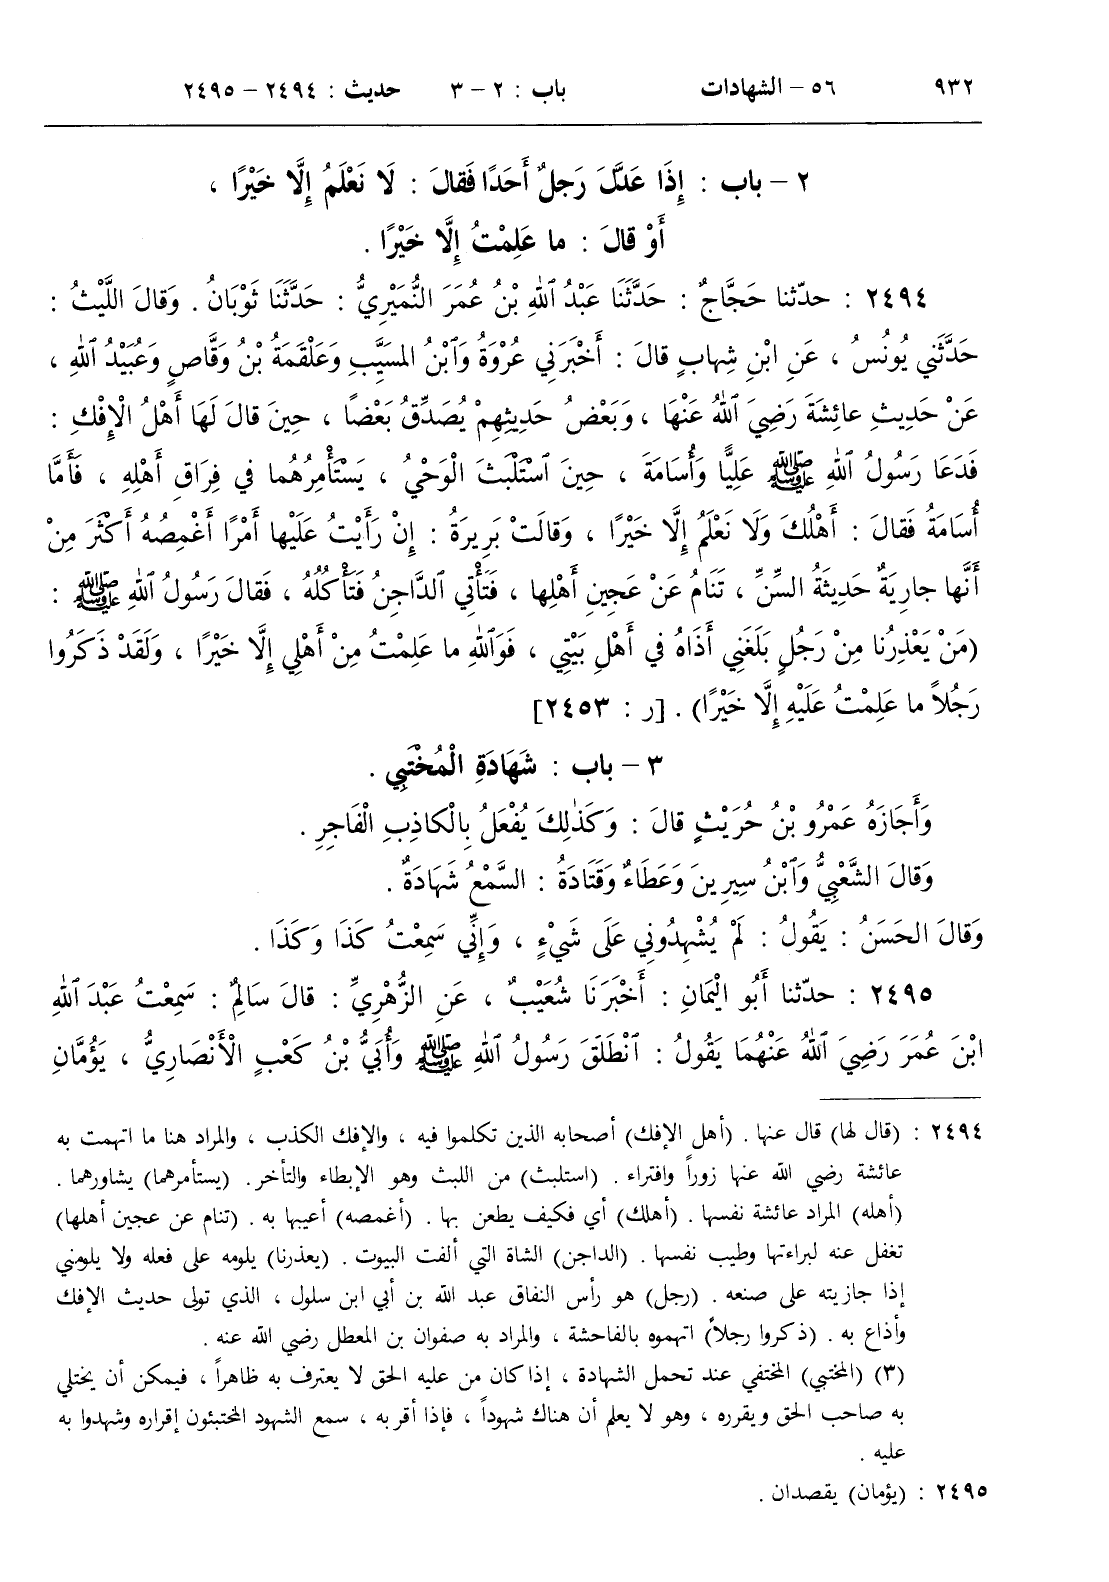 ٩٣٢ ٥٦ – الشهادات باب : ٢ – ٣ حديث : ٢٤٩٤ – ٢٤٩٥
٢ – باب : إِذَا عَدَّلَ رَجلٌ أَحَدًا فَقالَ : لَا نَعْلَمُ إِلَّا خَيْرًا ،
أَوْ قالَ : ما عَلِمْتُ إِلَّا خَيْرًا .
٢٤٩٤ : حدّثنا حَجَّاجٌ : حَدَّثَنَا عَبْدُ ٱللهِ بْنُ عُمَرَ النُّمَيْرِيُّ : حَدَّثَنَا ثَوْبَانُ . وَقالَ اللَّيْثُ :
حَدَّثَنِي يُونُسُ ، عَنِ ابْنِ شِهابٍ قالَ : أَخْبَرَنِي عُرْوَةُ وَٱبْنُ المسَيَّبِ وَعَلْقَمَةُ بْنُ وَقَّاصٍ وَعُبَيْدُ ٱللهِ ،
عَنْ حَدِيثِ عائِشَةَ رَضِيَ ٱللهُ عَنْهَا ، وَبَعْضُ حَدِيثِهِمْ يُصَدِّقُ بَعْضًا ، حِينَ قالَ لَهَا أَهْلُ الْإِفْكِ :
فَدَعَا رَسُولُ ٱللهِ ﷺ عَلِيًّا وَأُسَامَةَ ، حِينَ ٱسْتَلْبَثَ الْوَحْيُ ، يَسْتَأْمِرُهُما في فِرَاقِ أَهْلِهِ ، فَأَمَّا
أُسَامَةُ فَقالَ : أَهْلُكَ وَلَا نَعْلَمُ إِلَّا خَيْرًا ، وَقالَتْ بَرِيرَةُ : إِنْ رَأَيْتُ عَلَيْها أَمْرًا أَغْمِصُهُ أَكْثَرَ مِنْ
أَنَّها جارِيَةٌ حَدِيثَةُ السِّنِّ ، تَنَامُ عَنْ عَجِينِ أَهْلِها ، فَتَأْتِي الدَّاجِنُ فَتَأْكُلُهُ ، فَقالَ رَسُولُ ٱللهِ ﷺ :
(مَنْ يَعْذِرُنا مِنْ رَجُلٍ بَلَغَنِي أَذَاهُ في أَهْلِ بَيْتِي ، فَوَٱللهِ ما عَلِمْتُ مِنْ أَهْلِي إِلَّا خَيْرًا ، وَلَقَدْ ذَكَرُوا
رَجُلاً ما عَلِمْتُ عَلَيْهِ إِلَّا خَيْرًا) . [ر : ٢٤٥٣]
٣ – باب : شَهَادَةِ الْمُخْتَبِي .
وَأَجَازَهُ عَمْرُو بْنُ حُرَيْثٍ قالَ : وَكَذٰلِكَ يُفْعَلُ بِالْكاذِبِ الْفَاجِرِ .
وَقالَ الشَّعْبِيُّ وَٱبْنُ سِيرِينَ وَعَطَاءٌ وَقَتَادَةُ : السَّمْعُ شَهَادَةٌ .
وَقالَ الحَسَنُ : يَقُولُ : لَمْ يُشْهِدُونِي عَلَى شَيْءٍ ، وَإِنِّي سَمِعْتُ كَذَا وَكَذَا .
٢٤٩٥ : حدّثنا أَبُو الْيَمَانِ : أَخْبَرَنَا شُعَيْبٌ ، عَنِ الزُّهْرِيِّ : قالَ سَالِمٌ : سَمِعْتُ عَبْدَ ٱللهِ
ابْنَ عُمَرَ رَضِيَ ٱللهُ عَنْهُمَا يَقُولُ : ٱنْطَلَقَ رَسُولُ ٱللهِ ﷺ وَأُبَيُّ بْنُ كَعْبٍ الْأَنْصَارِيُّ ، يَؤُمَّانِ
٢٤٩٤ : (قال لها) قال عنها . (أهل الإفك) أصحابه الذين تكلموا فيه ، والإفك الكذب ، والمراد هنا ما اتهمت به
عائشة رضي الله عنها زوراً وافتراء . (استلبث) من اللبث وهو الإبطاء والتأخر . (يستأمرهما) يشاورهما .
(أهله) المراد عائشة نفسها . (أهلك) أي فكيف يطعن بها . (أغمصه) أعيبها به . (تنام عن عجين أهلها)
تغفل عنه لبراءتها وطيب نفسها . (الداجن) الشاة التي ألفت البيوت . (يعذرنا) يلومه على فعله ولا يلومني
إذا جازيته على صنعه . (رجل) هو رأس النفاق عبد الله بن أبي ابن سلول ، الذي تولى حديث الإفك
وأذاع به . (ذكروا رجلاً) اتهموه بالفاحشة ، والمراد به صفوان بن المعطل رضي الله عنه .
(٣) (المختبي) المختفي عند تحمل الشهادة ، إذا كان من عليه الحق لا يعترف به ظاهراً ، فيمكن أن يختلي
به صاحب الحق ويقرره ، وهو لا يعلم أن هناك شهوداً ، فإذا أقر به ، سمع الشهود المختبئون إقراره وشهدوا به
عليه .
٢٤٩٥ : (يؤمان) يقصدان .